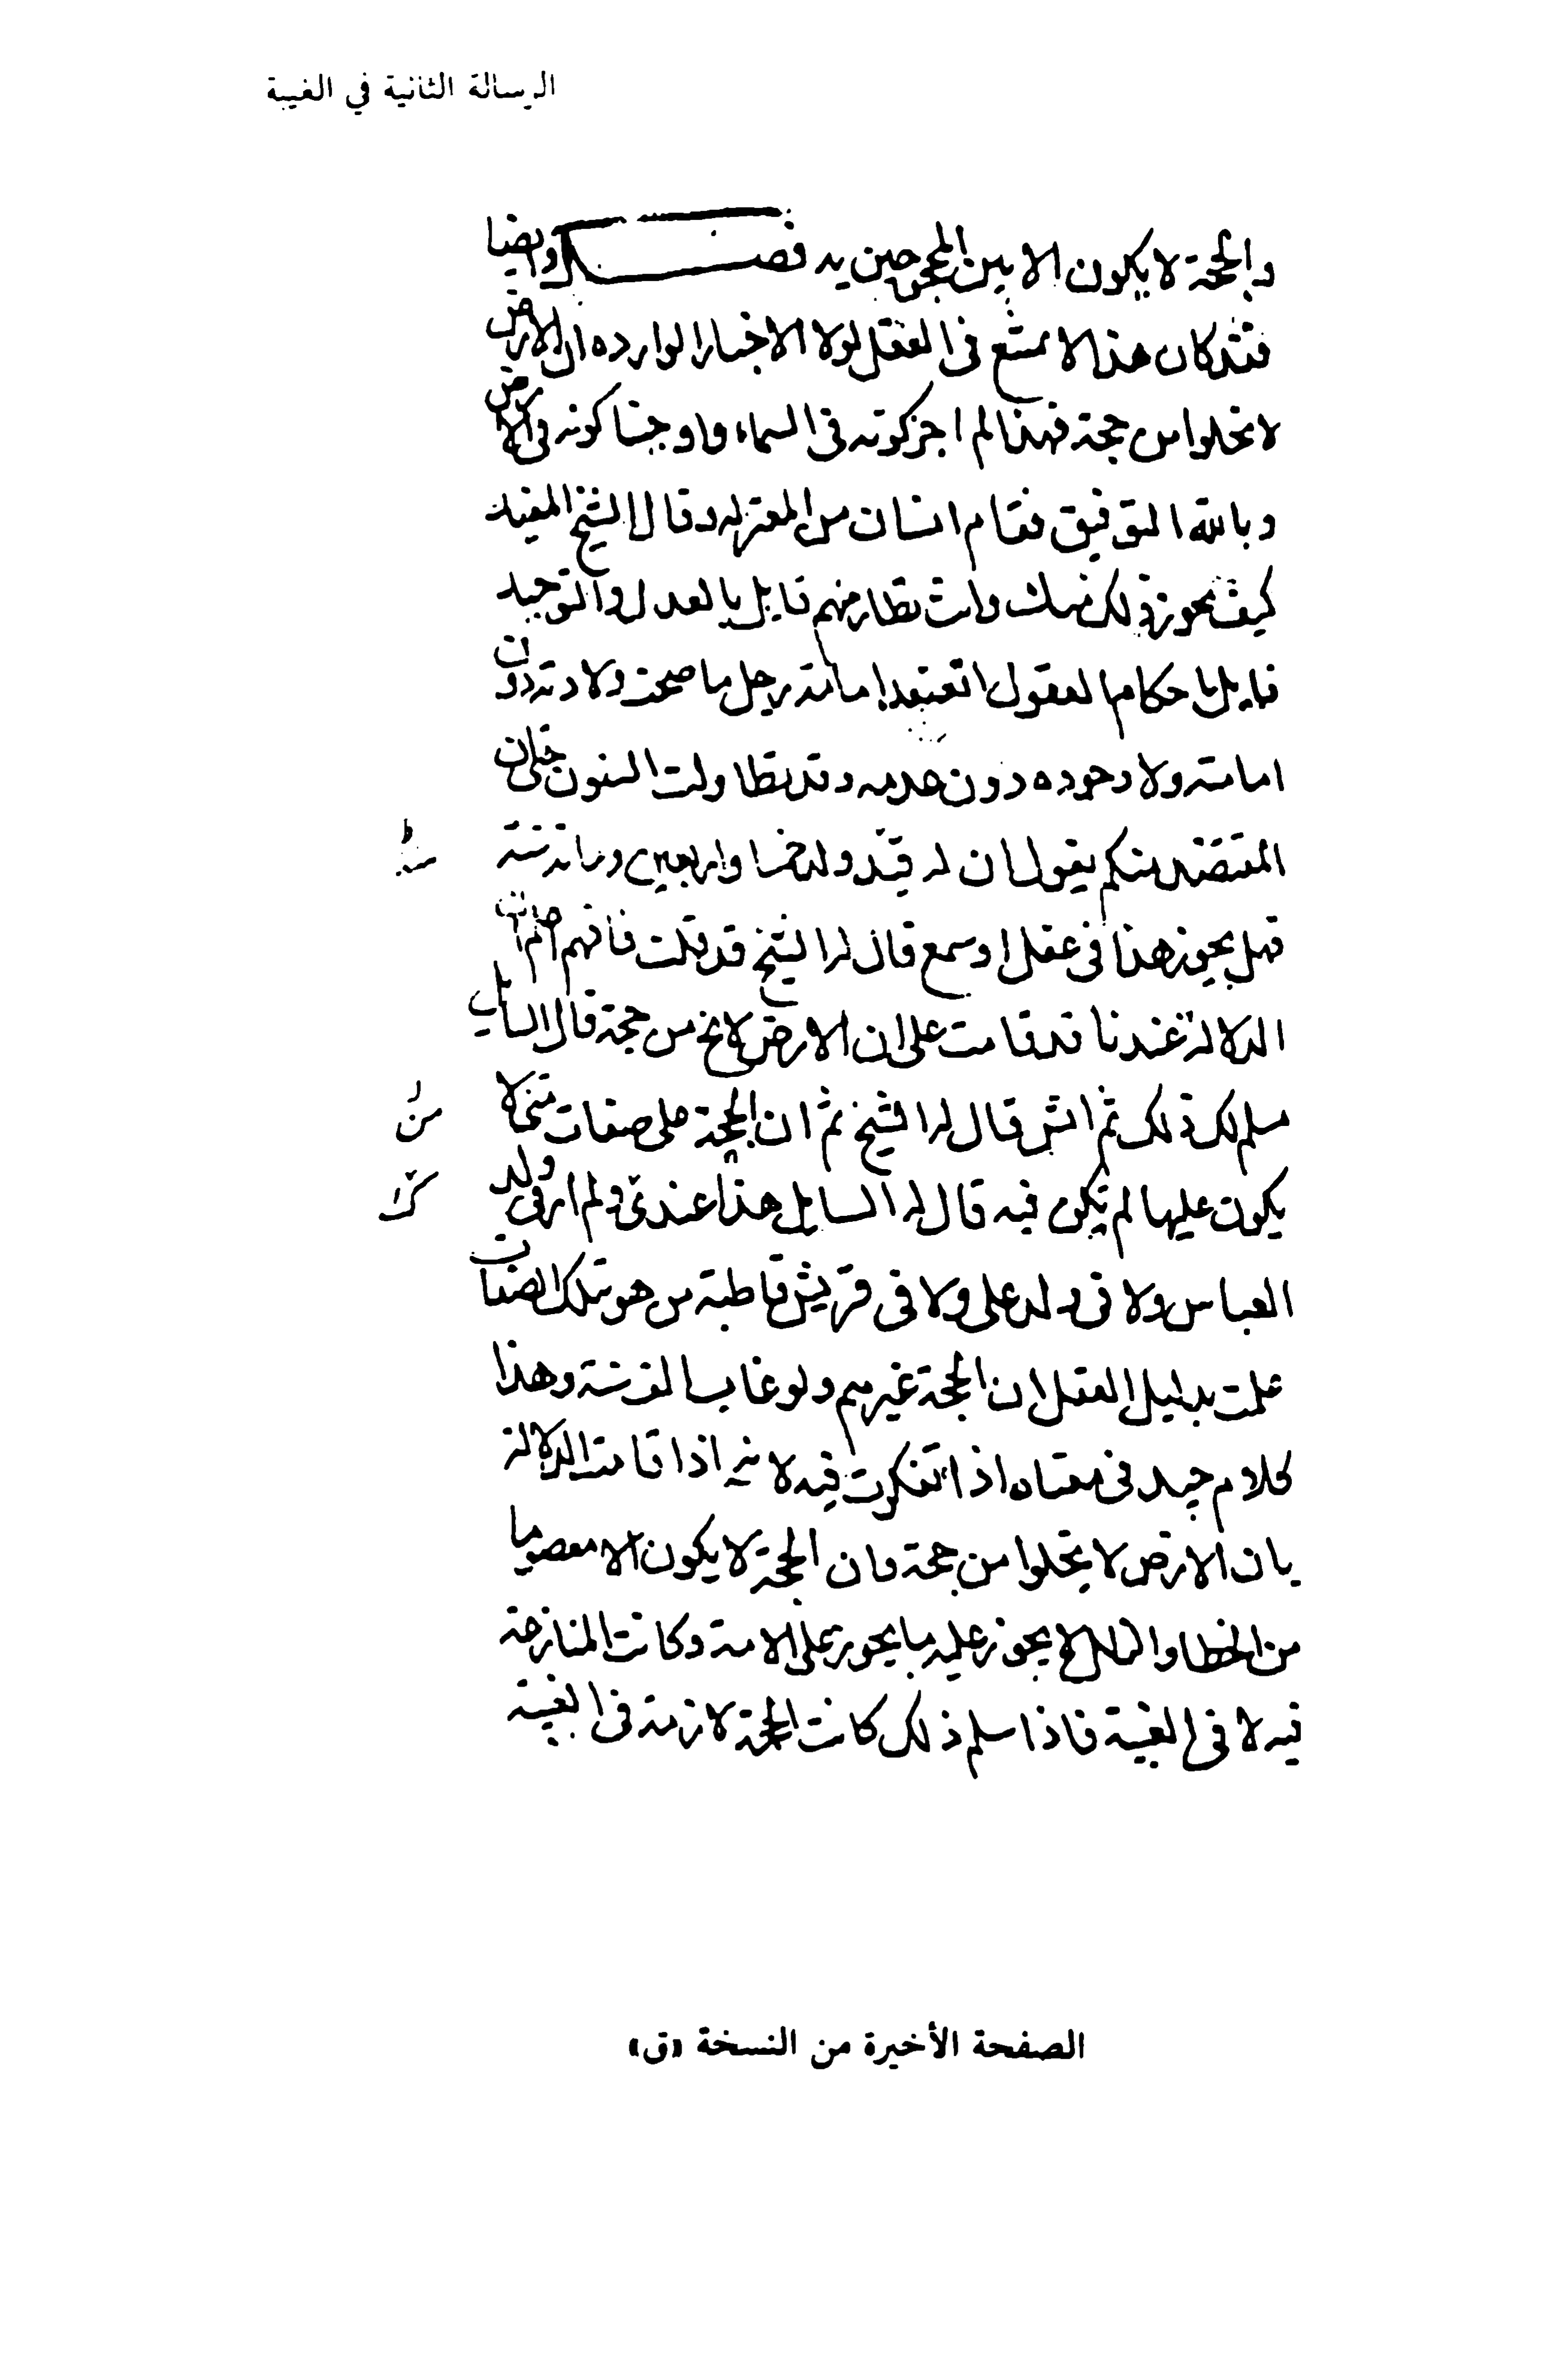 الرسالة الثانية في الغيبة
والحجة لا يكون الا بين المحجوجين يد فصل وايضا
فقد كان هذا لا يمتنع فى العقل لولا الاخبار الوارده ان الارض
لا تخلوا من حجة فهذا لم اجز كونه فى السماء واوجبنا كونه فى الارض
وبالله التوفيق فقام انسان من المعتزله وقال للشيخ المفيد
كيف يجوز ذلك منك وانت نظار منهم قايل بالعدل والتوحيد
قايل باحكام العقول تعتقد امامة رجل ما صحت ولادته دون
امامته ولا وجوده دون عدمه وقد تطاولت السنون حتى ان
المعتقد منكم يقول ان له منذ ولد خمسا واربعين ومائة سنة
فهل يجوز هذا فى عقل او سمع قال له الشيخ قد قلت فافهم
الدلالة عندنا قد قامت على ان الارض لا تخ من حجة قال السايل
مسلم لك ذلك ثم ايش قال له الشيخ ثم ان الحجة على صفات متى لا
يكون عليها لم يكن فيه قال له السايل هذا عندى ولم ار فى ولد
العباس ولا فى ولد على ولا فى قريش قاطبة من هو بتلك الصفات
علمت بدليل العقل ان الحجة غيرهم ولو غاب الف سنة وهذا
كلام جيد فى معناه اذا تفكرت فيه لانه اذا قامت الدلالة
بان الارض لا تخلوا من حجة وان الحجة لا يكون الا معصوما
من الخطا والزلل لا يجوز عليه ما يجوز على الامة وكانت المنازعة
فيه لا فى الغيبة فاذا سلم ذلك كانت الحجة لازمة فى الغيبة
الصفحة الأخيرة من النسخة «ق»